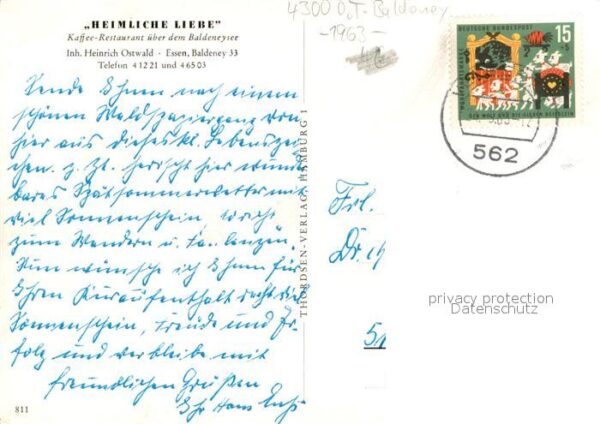 „HEIMLICHE LIEBE"
Kaffee-Restaurant über dem Baldeneysee
Inh. Heinrich Ostwald - Essen, Baldeney 33
Telefon 4 12 21 und 4 65 03
4300 O,T- Baldeney
-1963-
DEUTSCHE BUNDESPOST
15
+5
WOHLFAHRTSMARKE
DER WOLF UND DIE SIEBEN GEISSLEIN
562
Sende Ihnen nach einem
schönen Waldspaziergang von
hier aus dieses kl. Lebenszei-
chen. z. Zt. herrscht hier wunder
bares Spätsommerwetter mit
viel Sonnenschein
zum Wandern u.
Nun wünsche ich Ihnen für
Ihren Kuraufenthalt recht viel
Sonnenschein, Freude und Er-
folg und verbleibe mit
freundlichen Grüßen
Ihr Hans
THORDSEN-VERLAG, HAMBURG 1
Frl.
privacy protection
Datenschutz
811